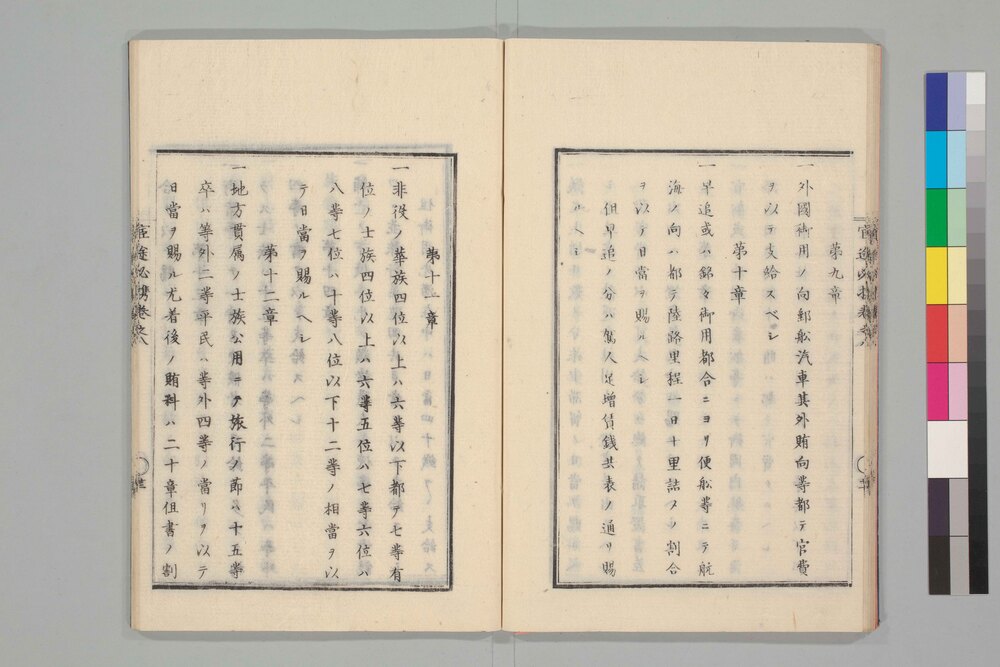 第九章
一外國御用ノ向郵舩汽車其外賄向等都テ官費
ヲ以テ支給スベシ
第十章
一早追或ハ銘々御用都合ニヨリ便舩等ニテ航
海ノ向ハ都テ陸路里程一日十里詰メノ割合
ヲ以テ日當ヲ賜ルヘシ
但早追ノ分ハ駕人足増賃銭共表ノ通リ賜
ルヘシ
第十一章
一非役ノ華族四位以上ハ六等以下都テ七等有
位ノ士族四位以上ハ六等五位ハ七等六位ハ
八等七位ハ十等八位以下十二等ノ相當ヲ以
テ日當ヲ賜ルヘシ
第十二章
一地方貫属ノ士族公用ニテ旅行ノ節ハ十五等
卒ハ等外二等平民ハ等外四等ノ當リヲ以テ
日當ヲ賜ル尤着後ノ賄料ハ二十章但書ノ割
官途必携巻之八